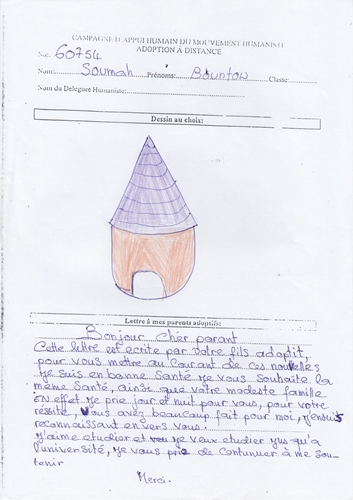 CAMPAGNE D'APPUI HUMAIN DU MOUVEMENT HUMANISTE
ADOPTION À DISTANCE
No: 60754
Nom: Soumah Prénoms: Bountou Classe:
Nom du Délégué Humaniste:
Dessin au choix:
Lettre à mes parents adoptifs:
Bonjour Cher parant
Cette lettre est ecrite par votre fils adoptif,
pour vous mettre au Courant de ces nouvelles
Je suis en bonne Santé Je vous souhaite la
même Santé, ainsi que votre modeste famille
EN effet Je prie jour et nuit pour vous, pour votre
réssite, Vous avez beaucoup fait pour moi, J'en suis
reconnaissant envers vous.
J'aime etudier et Je veux etudier jus qu'a
l'université, Je vous prie de Continuer à me Sou-
tenir
Merci.